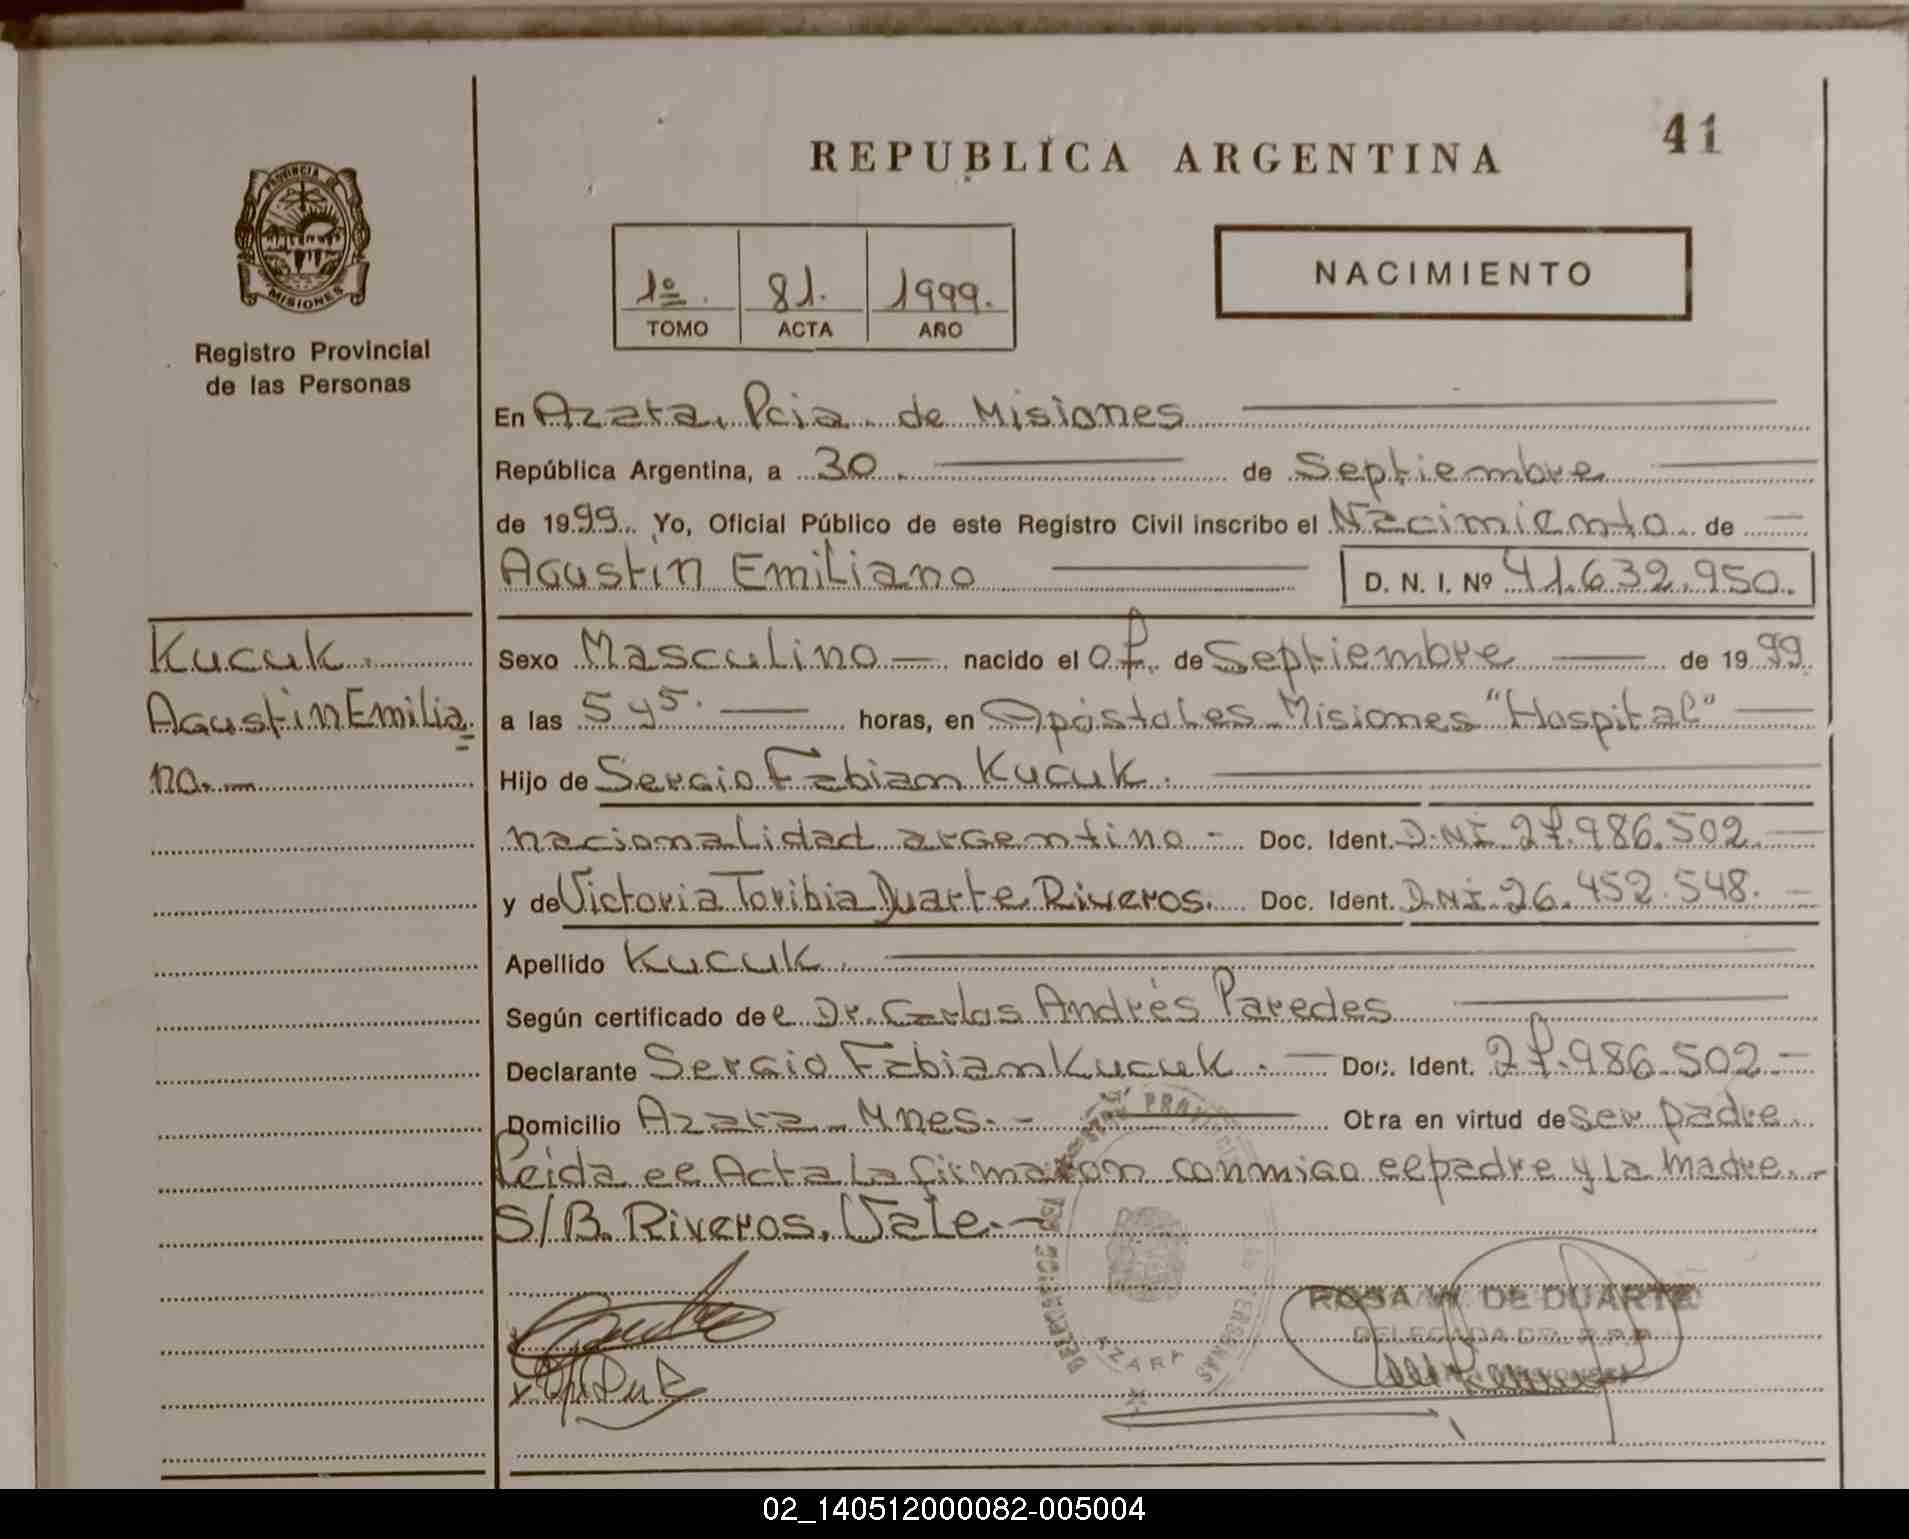 41
REPUBLICA ARGENTINA
PROVINCIA DE
MISIONES
Registro Provincial
de las Personas
1º. 81. 1999.
TOMO ACTA AÑO
NACIMIENTO
En Azara, Pcia. de Misiones
República Argentina, a 30. de Septiembre
de 1999. Yo, Oficial Público de este Registro Civil inscribo el Nacimiento de
Agustin Emiliano D. N. I. Nº 41.632.950.
Kucuk.
Agustin Emilia
no.
Sexo Masculino nacido el 07. de Septiembre de 1999
a las 5 y 5. horas, en Apóstoles Misiones "Hospital"
Hijo de Sergio Fabian Kucuk.
nacionalidad argentino - Doc. Ident. D.N.I. 27.986.502.
y de Victoria Toribia Duarte Riveros. Doc. Ident. D.N.I. 26.452.548.
Apellido Kucuk.
Según certificado del Dr. Carlos Andrés Paredes
Declarante Sergio Fabian Kucuk. Doc. Ident. 27.986.502
Domicilio Azara Mnes. Obra en virtud de ser padre
Leida el Acta la firmaron conmigo el padre y la madre.
S/B. Riveros. Vale.
ROSA W. DE DUARTE
DELEGADA DEL R.P.P.
AZARA
02_140512000082-005004